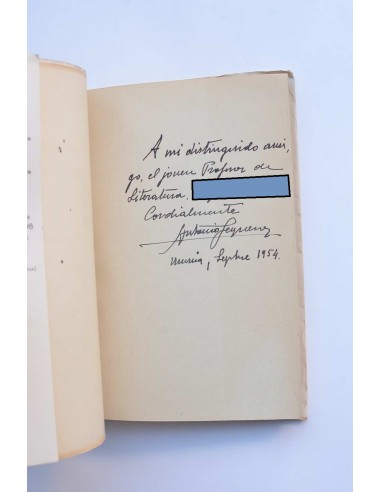 A mi distinguido ami,
go, el joven Profesor de
Literatura.
Cordialmente
Antonio
Murcia, Sepbre 1954.